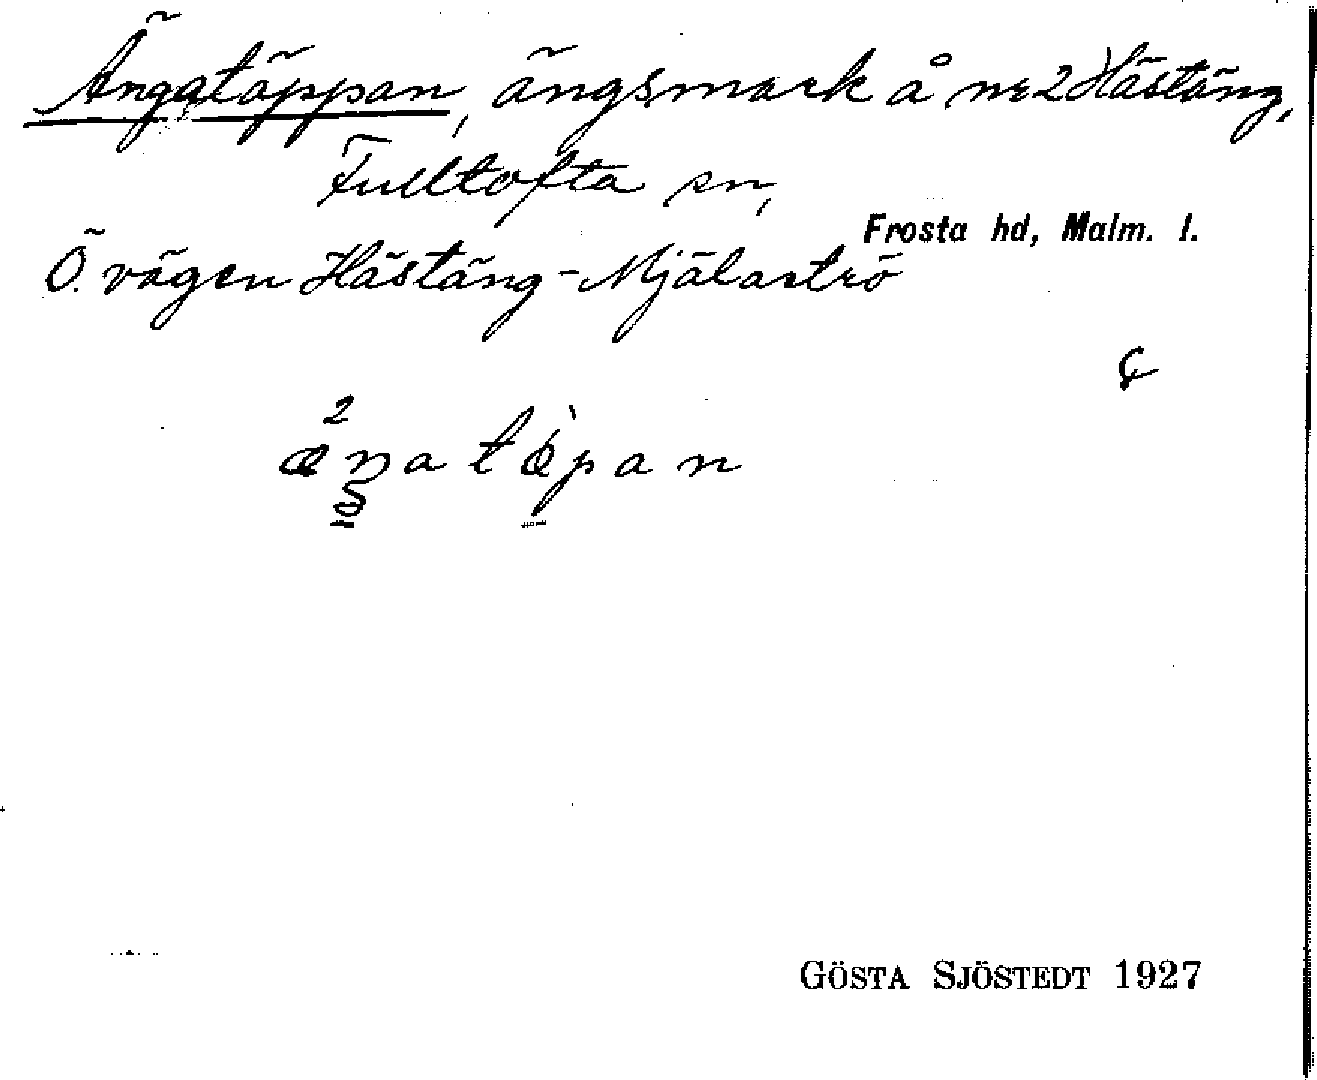 Ängatäppan, ängsmark å nr 2 Hästäng,
Fulltofta sn,
Frosta hd, Malm. l.
Ö. vägen Hästäng - Mjälaströ
GÖSTA SJÖSTEDT 1927